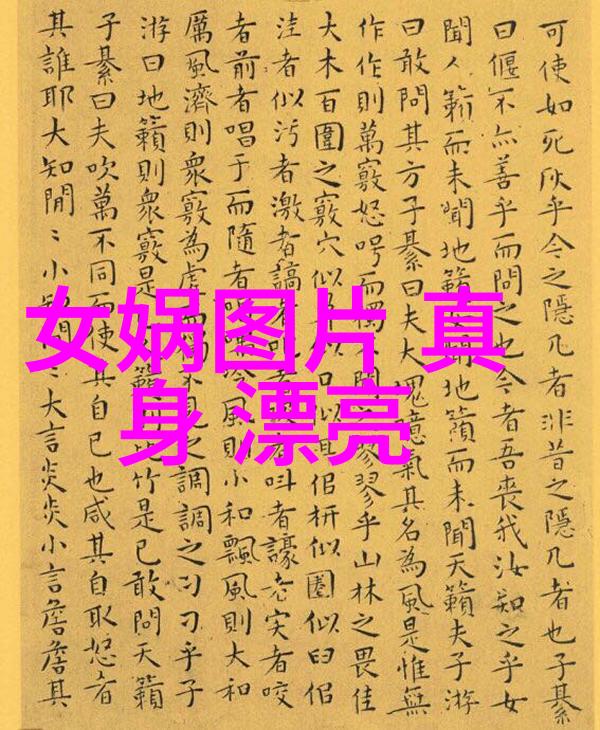 女娲图片 真
身 漂亮
可使如死灰乎今之隱几者非昔之隱几者也子綦
曰偃不亦善乎而問之也今者吾喪我汝知之乎女
聞人籟而未聞地籟聞地籟而未聞天籟夫子游
曰敢問其方子綦曰夫大塊噫氣其名為風是惟無
作作則萬竅怒呺而獨不聞之翏翏乎山林之畏佳
大木百圍之竅穴似鼻似口似耳佀枅似圈似臼佀
洼者似污者激者謞者叱者吸者叫者譹者宎者咬
者前者唱于而隨者唱喁泠風則小和飄風則大和
厲風濟則衆竅為虛而獨不見之調調之刁刁乎子
游曰地籟則衆竅是籟則比竹是已敢問天籟
子綦曰夫吹萬不同而使其自已也咸其自取怒者
其誰耶大知閒〻小知閒〻大言炎炎小言詹詹其